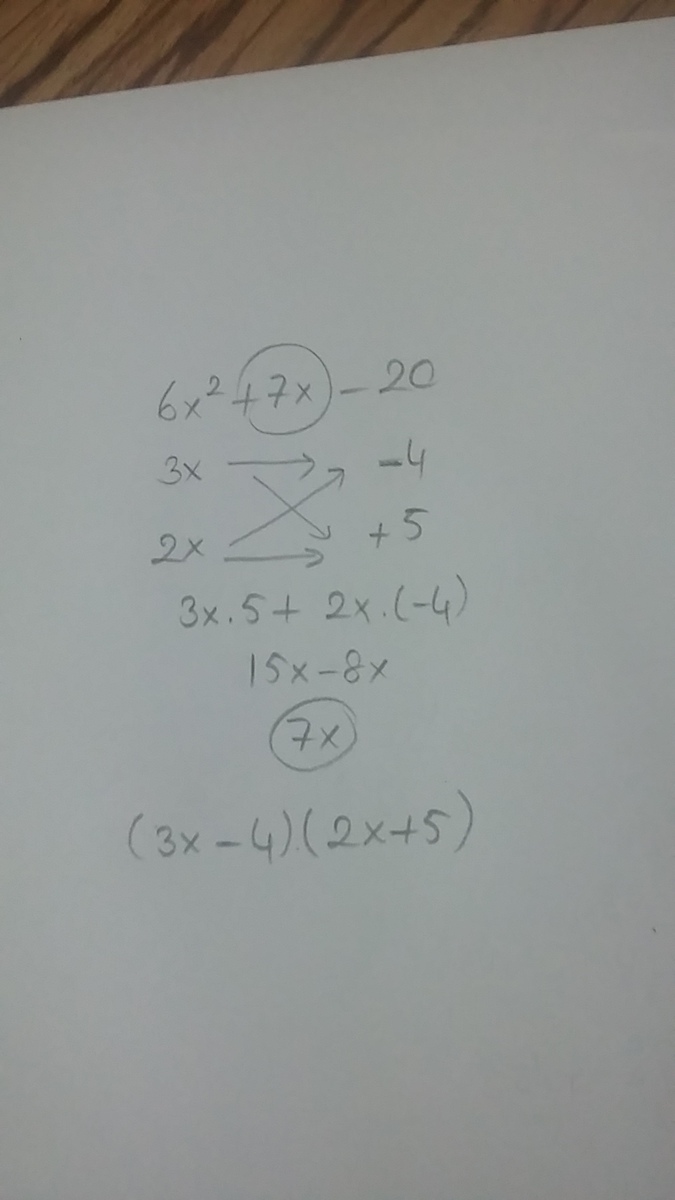 6x² + 7x - 20
3x -4
2x +5
3x.5 + 2x.(-4)
15x - 8x
7x
(3x - 4).(2x + 5)